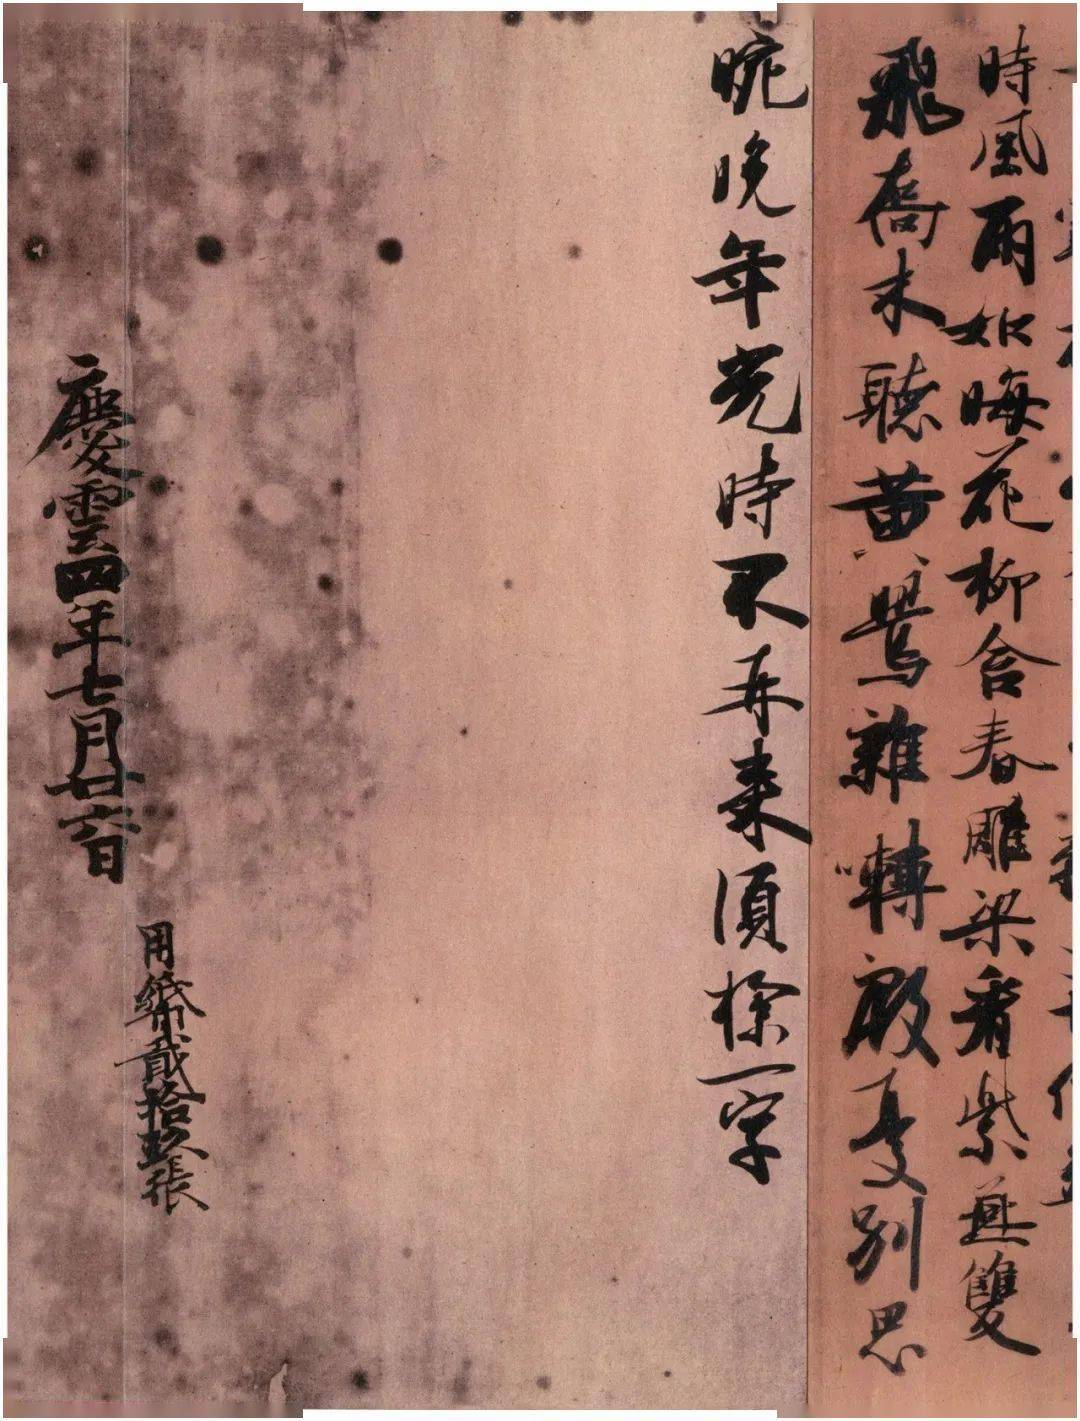 時風雨如晦花柳含春雕梁看紫燕雙
飛喬木聽黄鸎雜囀殷憂別思
晼晚年光時不再來須探一字
用紙貳拾玖張
慶雲四年七月廿六日